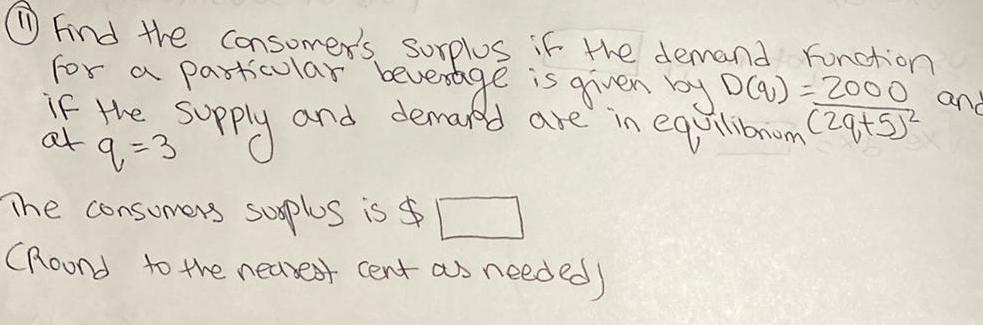 ⑪ Find the consumer's surplus if the demand function
for a particular beverage is given by D(q) = 2000/(2q+5)² and
if the supply and demand are in equilibrium
at q = 3
The consumers surplus is $
(Round to the nearest cent as needed)